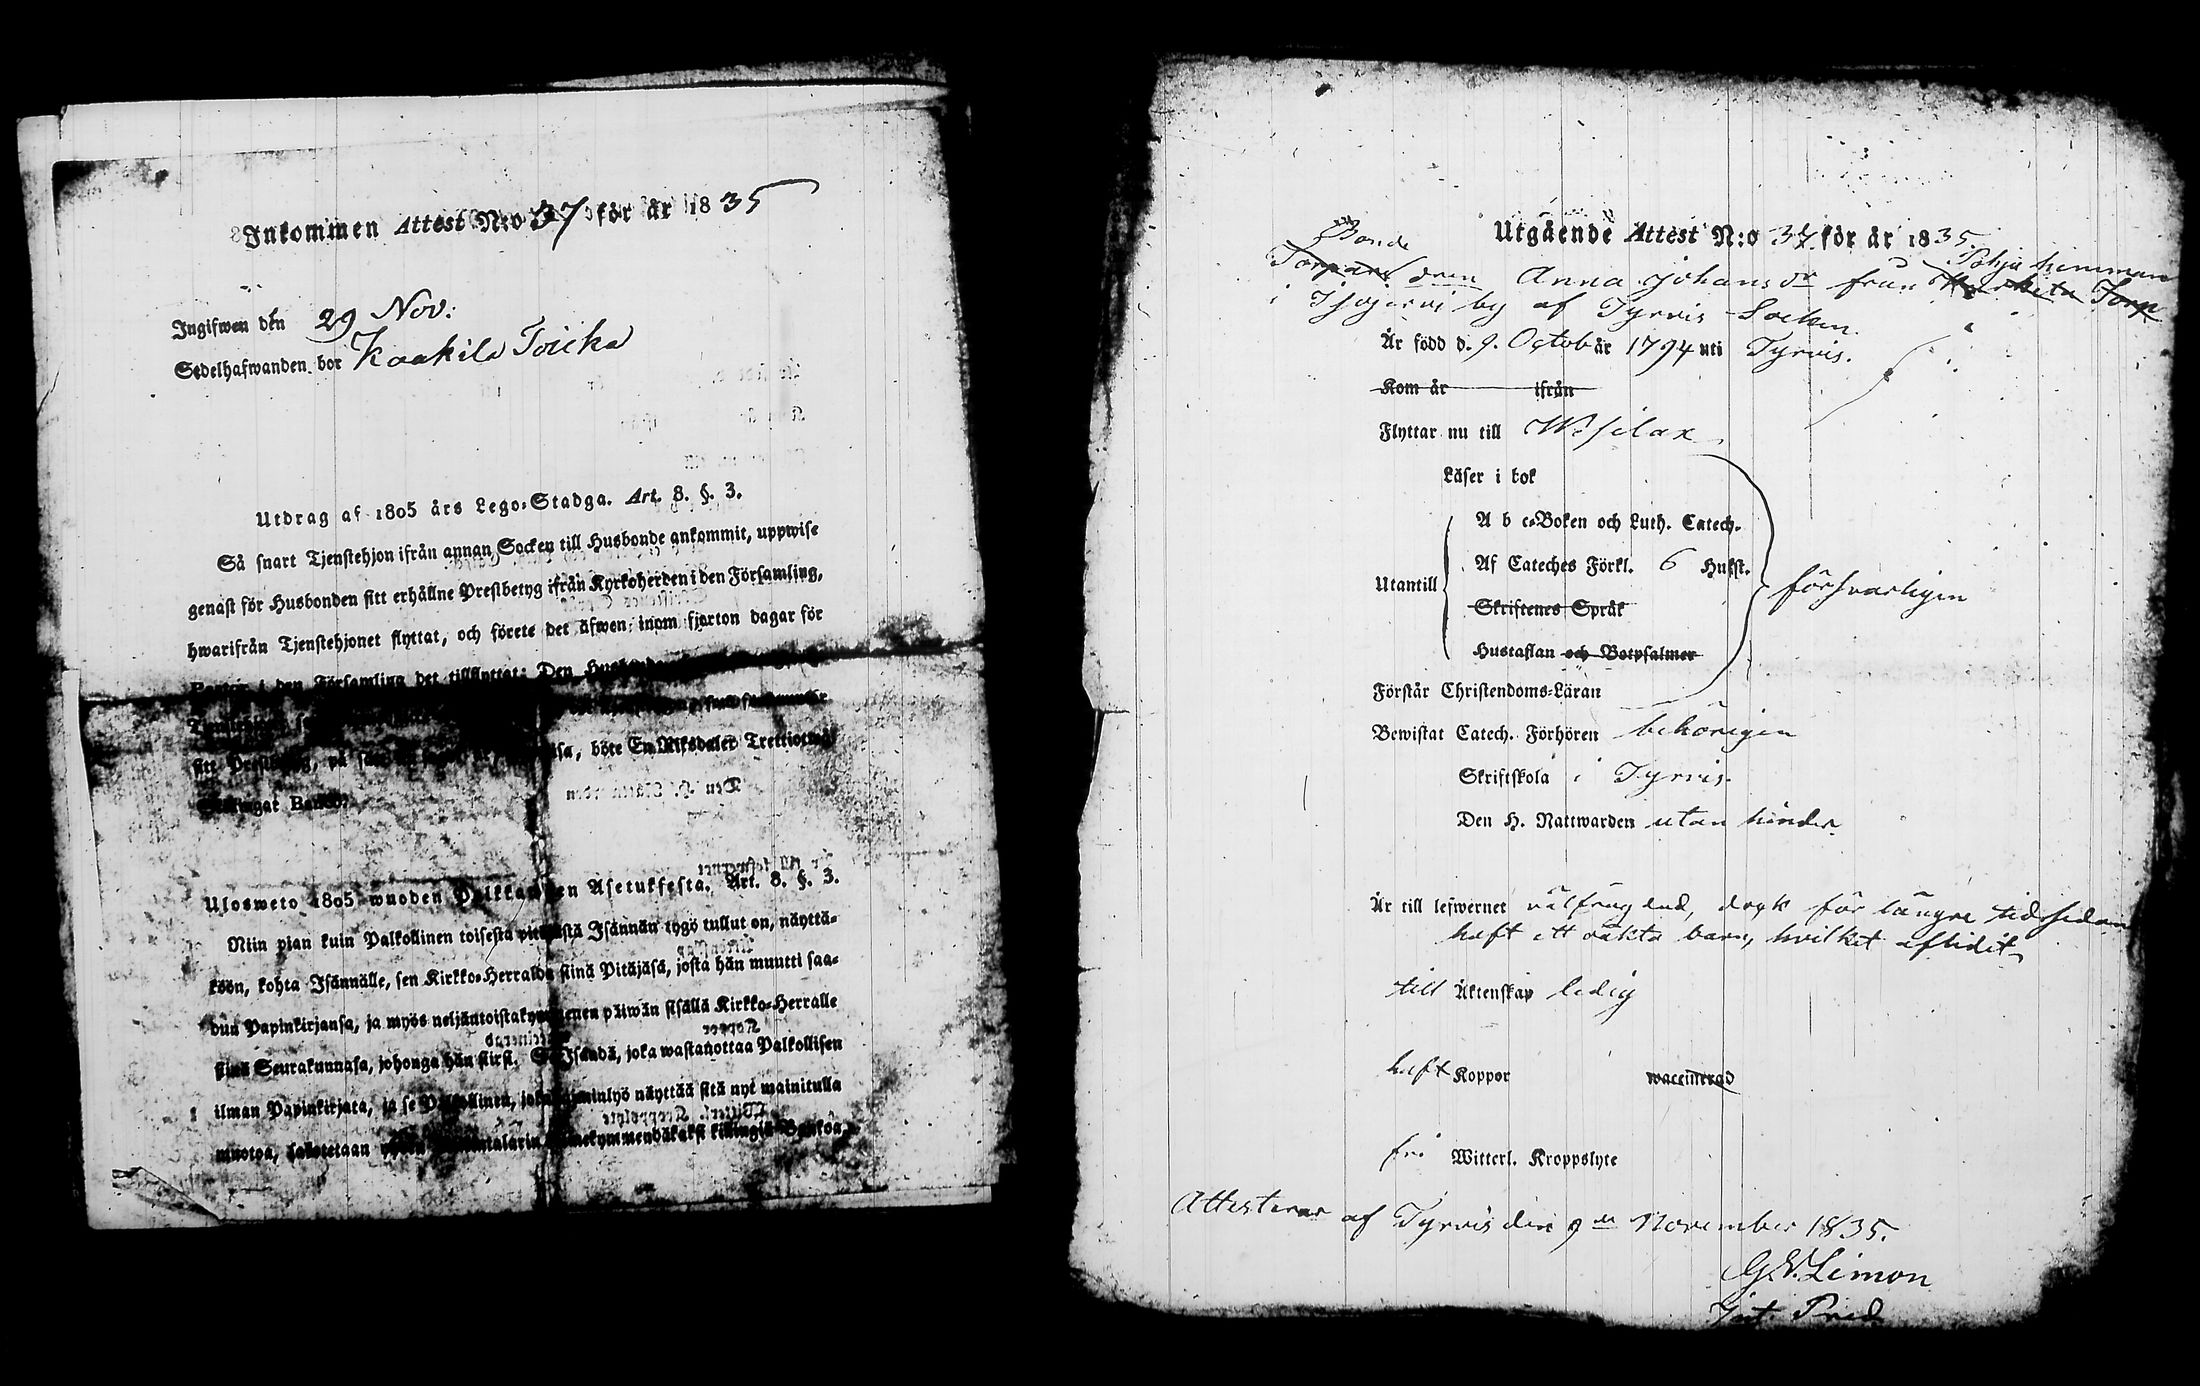 Inkommen Attest N:o 37 för år 1835
Ingifwen den 29 Nov:
Sedelhafwanden bor Kaakila Toicka
Utdrag af 1805 års Lego-Stadga. Art. 8. §. 3.
Så snart Tjenstehjon ifrån annan Socken till Husbonde ankommit, uppwise
genast för Husbonden sitt erhållne Prestbetyg ifrån Kyrkoherden i den Församling,
hwarifrån Tjenstehjonet flyttat, och förete det äfwen inom fjorton dagar för
i den Församling det tillflyttat: Den
sitt Prestbetyg, på böte En Riksdaler Trettiotwå
Skillingar Banco.
Ulosweto 1805 wuoden Palkkawäen Asetuksesta. Art. 8. §. 3.
Niin pian kuin Palkollinen toisesta pitäjästä Isännän tygö tullut on, näyttä-
köön, kohta Isännälle, sen Kirkko-Herralda siinä Pitäjäsä, josta hän muutti saa-
dun Papinkirjansa, ja myös neljäntoistakymmenen päiwän sisällä Kirkko-Herralle
siinä Seurakunnasa, johonga hän siirsi. Se Isändä, joka wastanottaa Palkollisen
ilman Papinkirjata, ja se Palkollinen, joka laiminlyö näyttää sitä nyt mainitulla
muotoa, sakotetaan kolmekymmendäkaksi killingiä Bankoa.
Utgående Attest N:o 37 för år 1835
Bonde Pohja hemman
Torpare dren Anna Johansdr från Torp
i by af Tyrvis Socken.
Är född d. 9. Octob år 1794 uti Tyrvis.
Kom år ifrån
Flyttar nu till Wesilax
Läser i bok
A b c-Boken och Luth. Catech.
Utantill
Af Cateches Förkl. 6 Hufst.
försvarligen
Skriftenes Språk
Hustaflan och Botpsalmer
Förstår Christendoms-Läran
Bewistat Catech. Förhören behörigen
Skriftskola i Tyrvis
Den H. Nattwarden utan hinder
Är till lefwernet välfrägdad, dock för längre tid sedan
haft ett oäkta barn, hvilket aflidit
till Äktenskap ledig
haft Koppor waccinerad
fri Witterl. Kroppslyte
Attesterar af Tyrvis den 9de November 1835.
G.W. Limon
Pred.